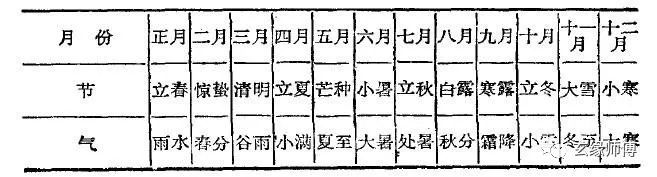 月 份 正月 二月 三月 四月 五月 六月 七月 八月 九月 十月 十一月 十二月
节 立春 惊蛰 清明 立夏 芒种 小暑 立秋 白露 寒露 立冬 大雪 小寒
气 雨水 春分 谷雨 小满 夏至 大暑 处暑 秋分 霜降 小雪 冬至 大寒
玄缘师傅